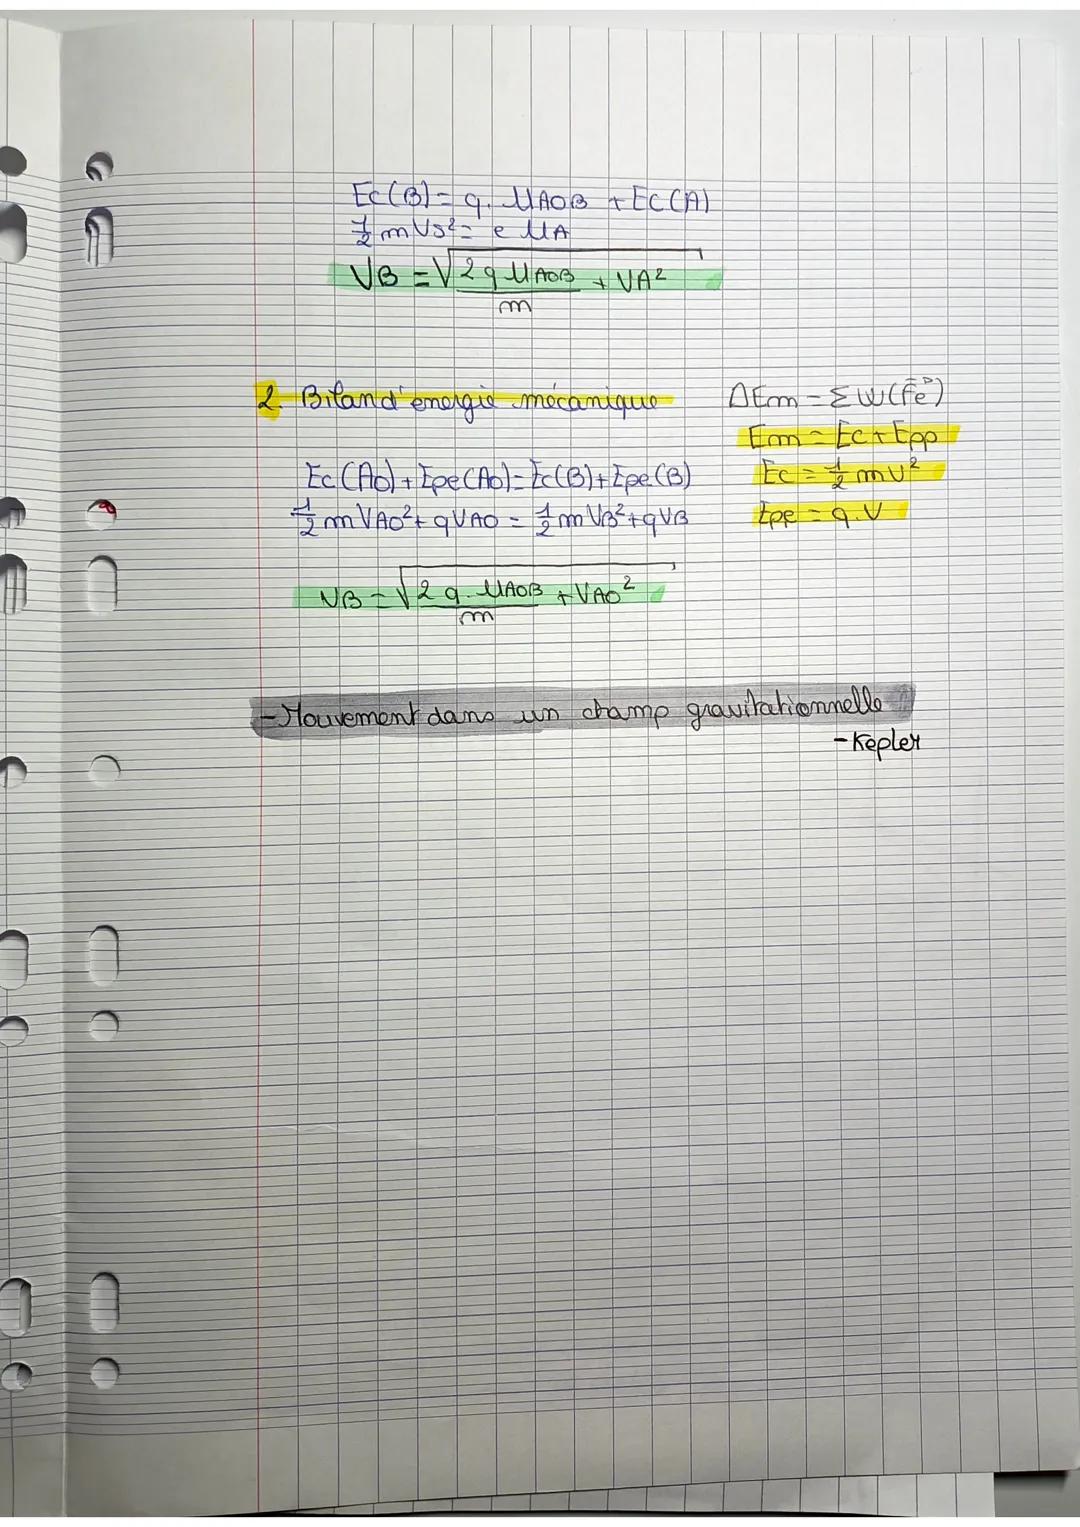 Ec(B) = q. UAOB + EC(A)
1/2 m VB² = e UA
VB = √(2 q UAOB / m + VA²)
2. Bilan d'énergie mécanique
ΔEm = Σ W(Fe)
Em = Ec + Epp
Ec (AO) + Epe (AO) = Ec (B) + Epe (B)
Ec = 1/2 mv²
1/2 m VAO² + qVAO = 1/2 m VB² + qVB
Epe = q.V
VB = √(2 q. UAOB / m + VAO²)
- Mouvement dans un champ gravitationnelle
- Kepler